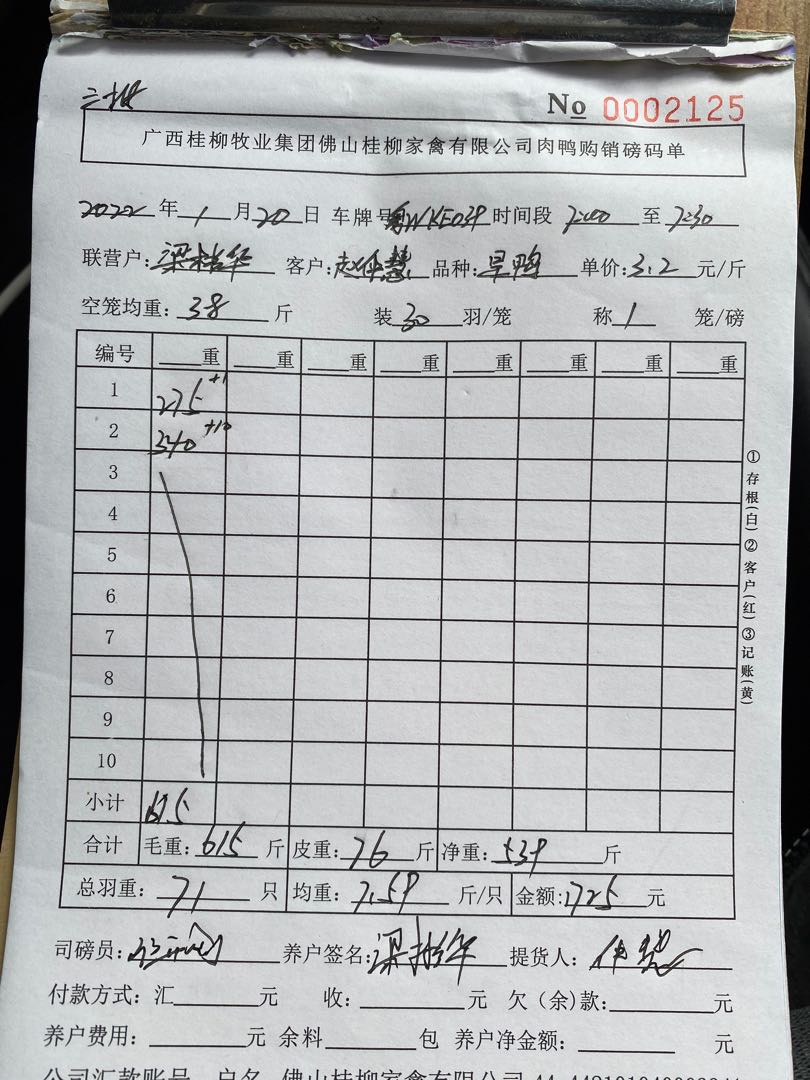 No 0002125
广西桂柳牧业集团佛山桂柳家禽有限公司肉鸭购销磅码单
2022年1月20日 车牌号 WKE039 时间段 7:00 至 7:30
联营户: 客户: 品种:旱鸭 单价:3.2元/斤
空笼均重:38斤 装30羽/笼 称1笼/磅
编号 重 重 重 重 重 重 重 重
1 275+1
2 340+10
3
4
5
6
7
8
9
10
小计 615
合计 毛重:615斤 皮重:76斤 净重:539斤
总羽重:71只 均重:7.59斤/只 金额:1725元
司磅员: 养户签名: 提货人:
付款方式:汇 元 收: 元 欠(余)款: 元
养户费用: 元 余料 包 养户净金额: 元
公司汇款账号 户名 佛山桂柳家禽有限公司
①存根(白)②客户(红)③记账(黄)